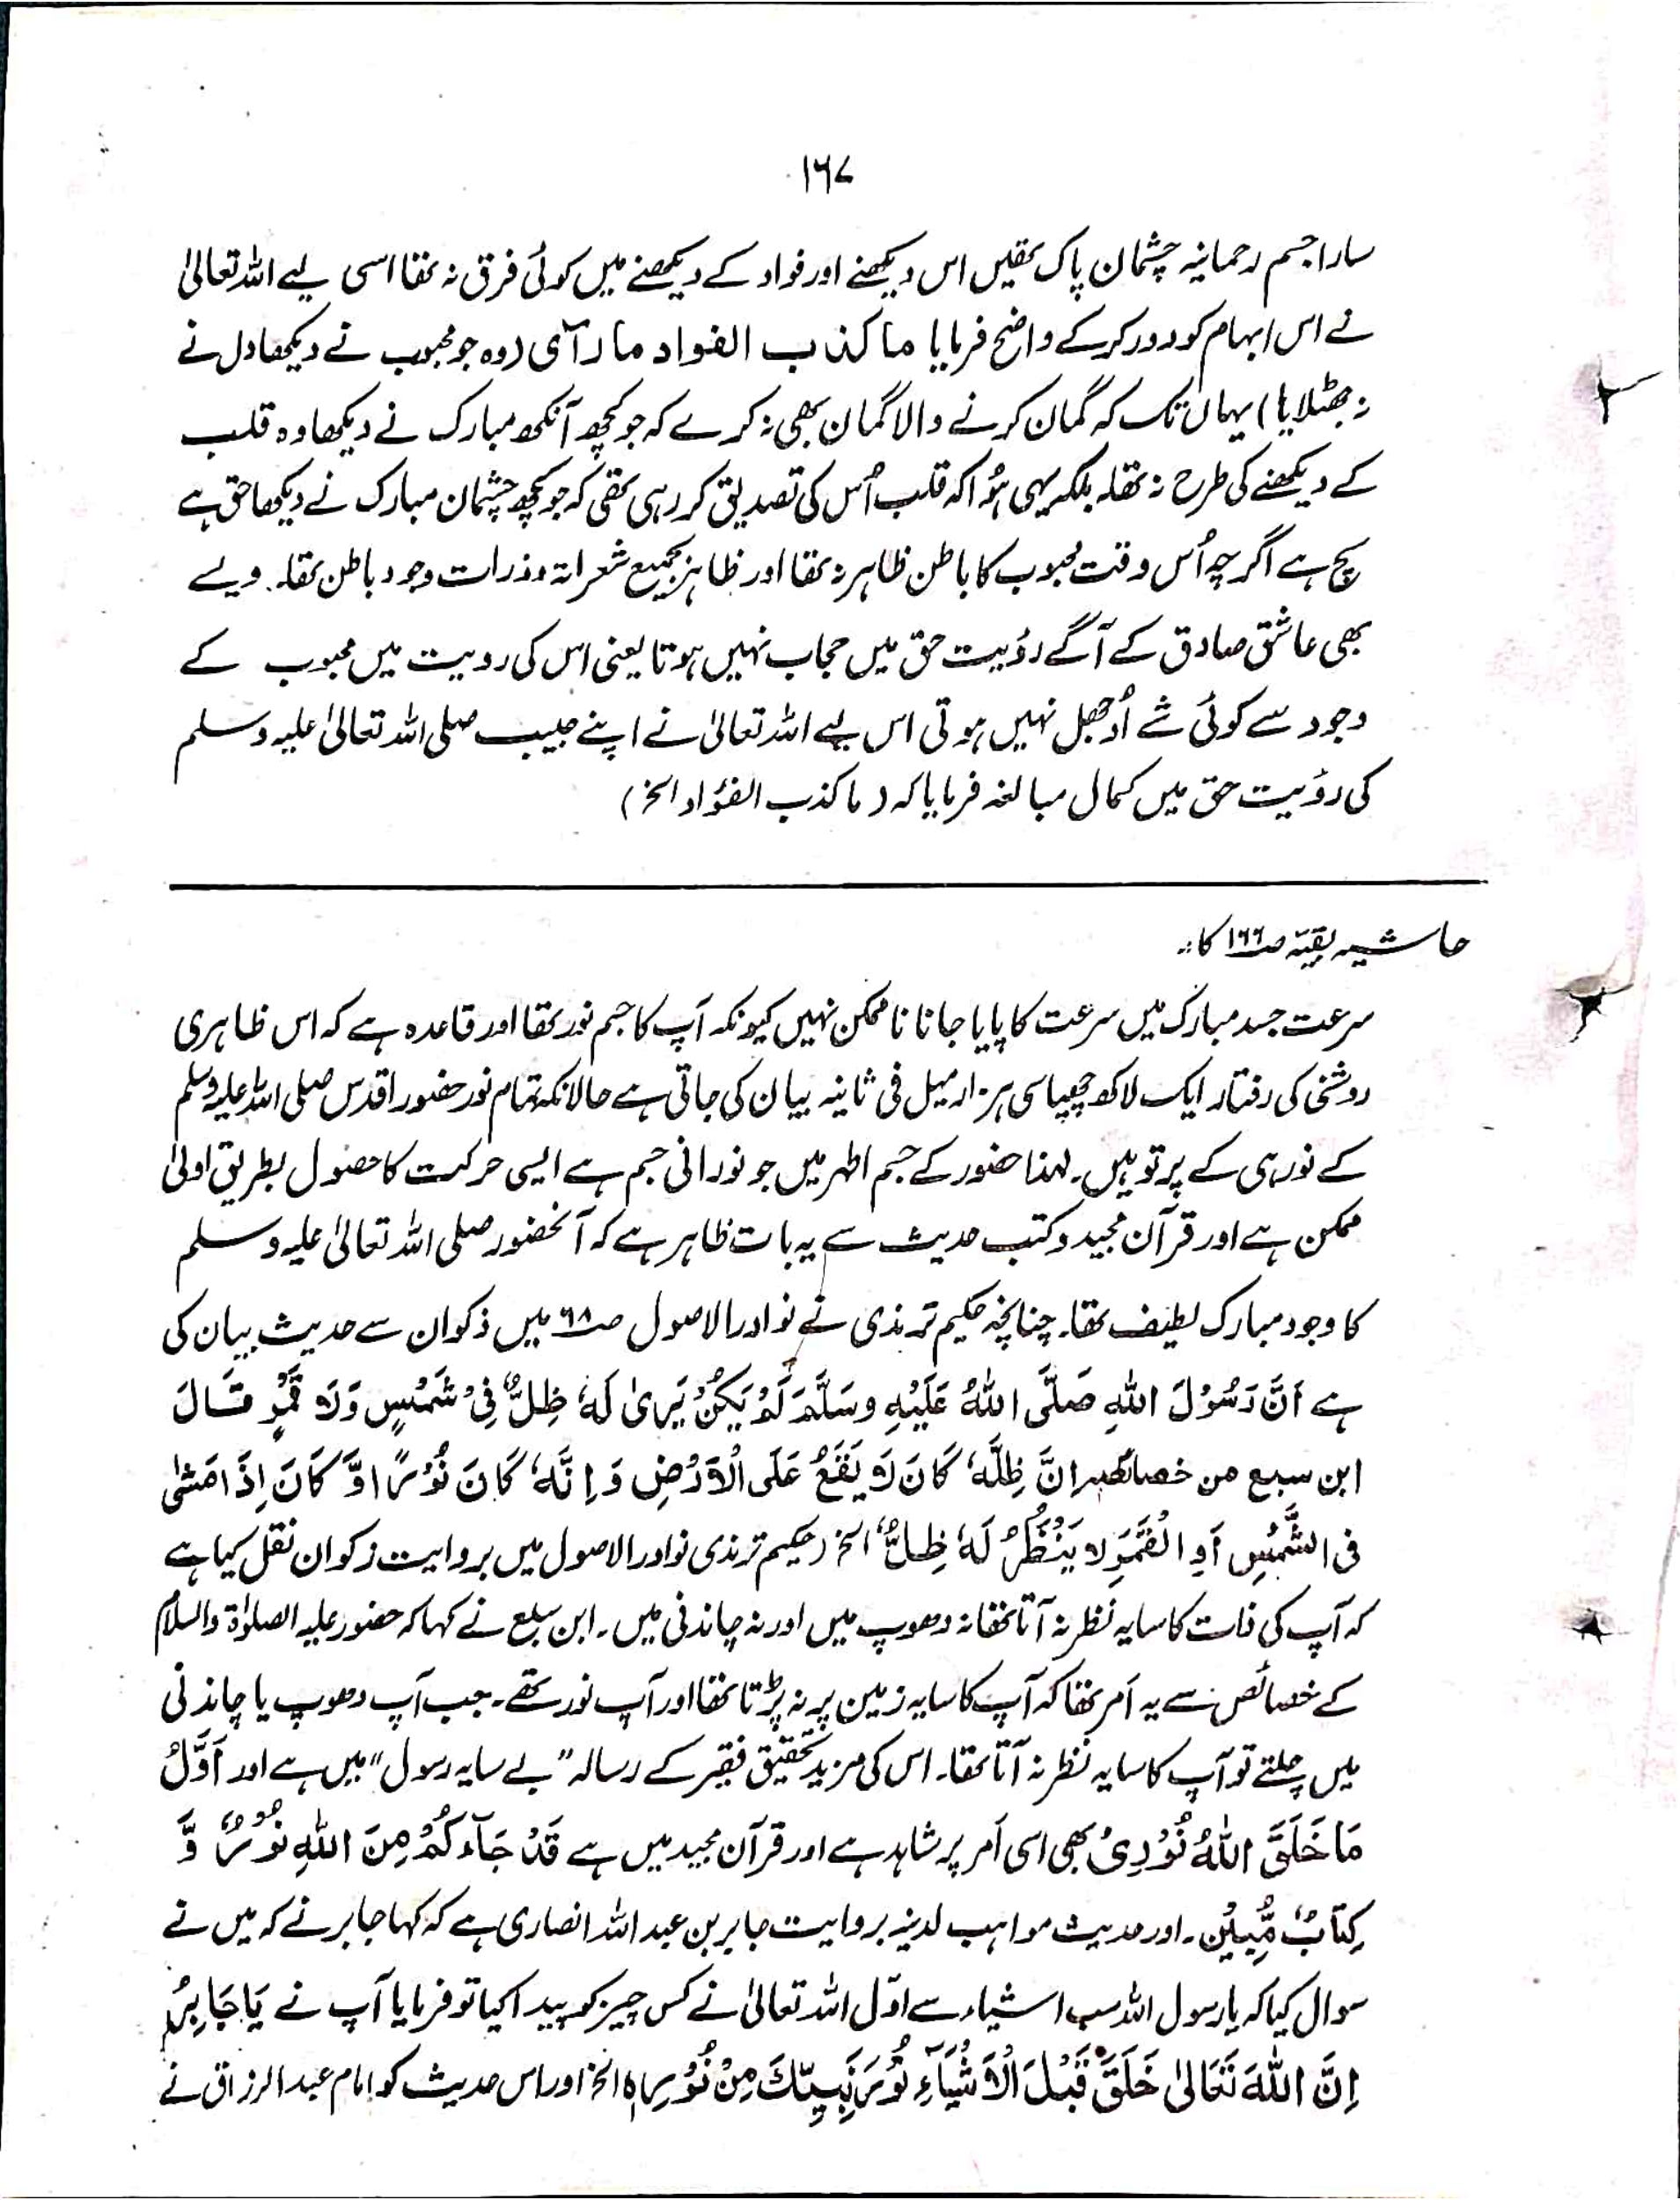 ۱۶۷
سارا جسم رحمانیہ چشمان پاک تھیں اس دیکھنے اور فواد کے دیکھنے میں کوئی فرق نہ تھا اسی لیے اللہ تعالیٰ
نے اس ابہام کو دور کر کے واضح فرمایا ما کذب الفواد ما رآی (وہ جو محبوب نے دیکھا دل نے
نہ جھٹلایا) یہاں تک کہ گمان کرنے والا گمان بھی نہ کرے کہ جو کچھ آنکھ مبارک نے دیکھا وہ قلب
کے دیکھنے کی طرح نہ تھا۔ بلکہ یہی ہُوا کہ قلب اُس کی تصدیق کر رہی تھی کہ جو کچھ چشمان مبارک نے دیکھا حق ہے
سچ ہے اگرچہ اُس وقت محبوب کا باطن ظاہر نہ تھا اور ظاہر بجمیع شعرات و ذرات وجود باطن تھا۔ ویسے
بھی عاشق صادق کے آگے رؤیت حق میں حجاب نہیں ہوتا یعنی اس کی رویت میں محبوب کے
وجود سے کوئی شے اُوجھل نہیں ہوتی اس لیے اللہ تعالیٰ نے اپنے حبیب صلی اللہ تعالیٰ علیہ وسلم
کی رؤیت حق میں کمال مبالغہ فرمایا کہ (ما کذب الفؤاد الخ)
حاشیہ بقیہ صـ۱۶۶ کا:۔
سرعت جسد مبارک میں سرعت کا پایا جانا ناممکن نہیں کیونکہ آپ کا جسم نور تھا اور قاعدہ ہے کہ اس ظاہری
روشنی کی رفتار ایک لاکھ چھیاسی ہزار میل فی ثانیہ بیان کی جاتی ہے حالانکہ تمام نور حضور اقدس صلی اللہ علیہ وسلم
کے نور ہی کے پرتو ہیں۔ لہذا حضور کے جسم اطہر میں جو نورانی جسم ہے ایسی حرکت کا حصول بطریق اولیٰ
ممکن ہے اور قرآن مجید و کتب حدیث سے یہ بات ظاہر ہے کہ آنحضور صلی اللہ تعالیٰ علیہ وسلم
کا وجود مبارک لطیف تھا۔ چنانچہ حکیم ترمذی نے نوادر الاصول صـ۶۸ میں ذکوان سے حدیث بیان کی
ہے اَنَّ رَسُوْلَ اللہِ صَلَّی اللہُ عَلَیْہِ وسَلَّمَ لَمْ یَکُنْ یَریٰ لَہٗ ظِلٌّ فِیْ شَمْسٍ وَلَا قَمَرٍ قَالَ
ابن سبع من خصائصہ اِنَّ ظِلَّہٗ کَانَ لَا یَقَعُ عَلَی الْاَرْضِ وَ اِنَّہٗ کَانَ نُوْرًا وَّ کَانَ اِذَا مَشٰی
فی الشَّمْسِ اَوِ الْقَمَرِ لا یَنْظُرُ لَہٗ ظِلٌّ الخ (حکیم ترمذی نوادر الاصول میں بروایت زکوان نقل کیا ہے
کہ آپ کی ذات کا سایہ نظر نہ آتا تھا نہ دھوپ میں اور نہ چاندنی میں۔ ابن سبع نے کہا کہ حضور علیہ الصلوٰۃ والسلام
کے خصائص سے یہ اَمر تھا کہ آپ کا سایہ زمین پر نہ پڑتا تھا اور آپ نور تھے۔ جب آپ دھوپ یا چاندنی
میں چلتے تو آپ کا سایہ نظر نہ آتا تھا۔ اس کی مزید تحقیق فقیر کے رسالہ "بے سایہ رسول" میں ہے اور اَوَّلُ
مَا خَلَقَ اللہُ نُوْرِیْ بھی اسی اَمر پر شاہد ہے اور قرآن مجید میں ہے قَدْ جَآءَکُمْ مِنَ اللہِ نُوْرٌ وَّ
کِتَابٌ مُّبِیْن۔ اور حدیث مواہب لدینہ بروایت جابر بن عبد اللہ انصاری ہے کہ کہا جابر نے کہ میں نے
سوال کیا کہ یا رسول اللہ سب اشیاء سے اوّل اللہ تعالیٰ نے کس چیز کو پیدا کیا تو فرمایا آپ نے یَا جَابِرُ
اِنَّ اللہَ تَعَالیٰ خَلَقَ قَبْلَ الْاَشْیَآءِ نُوْرَ نَبِیِّکَ مِنْ نُوْرِہٖ الخ اور اس حدیث کو امام عبد الرزاق نے